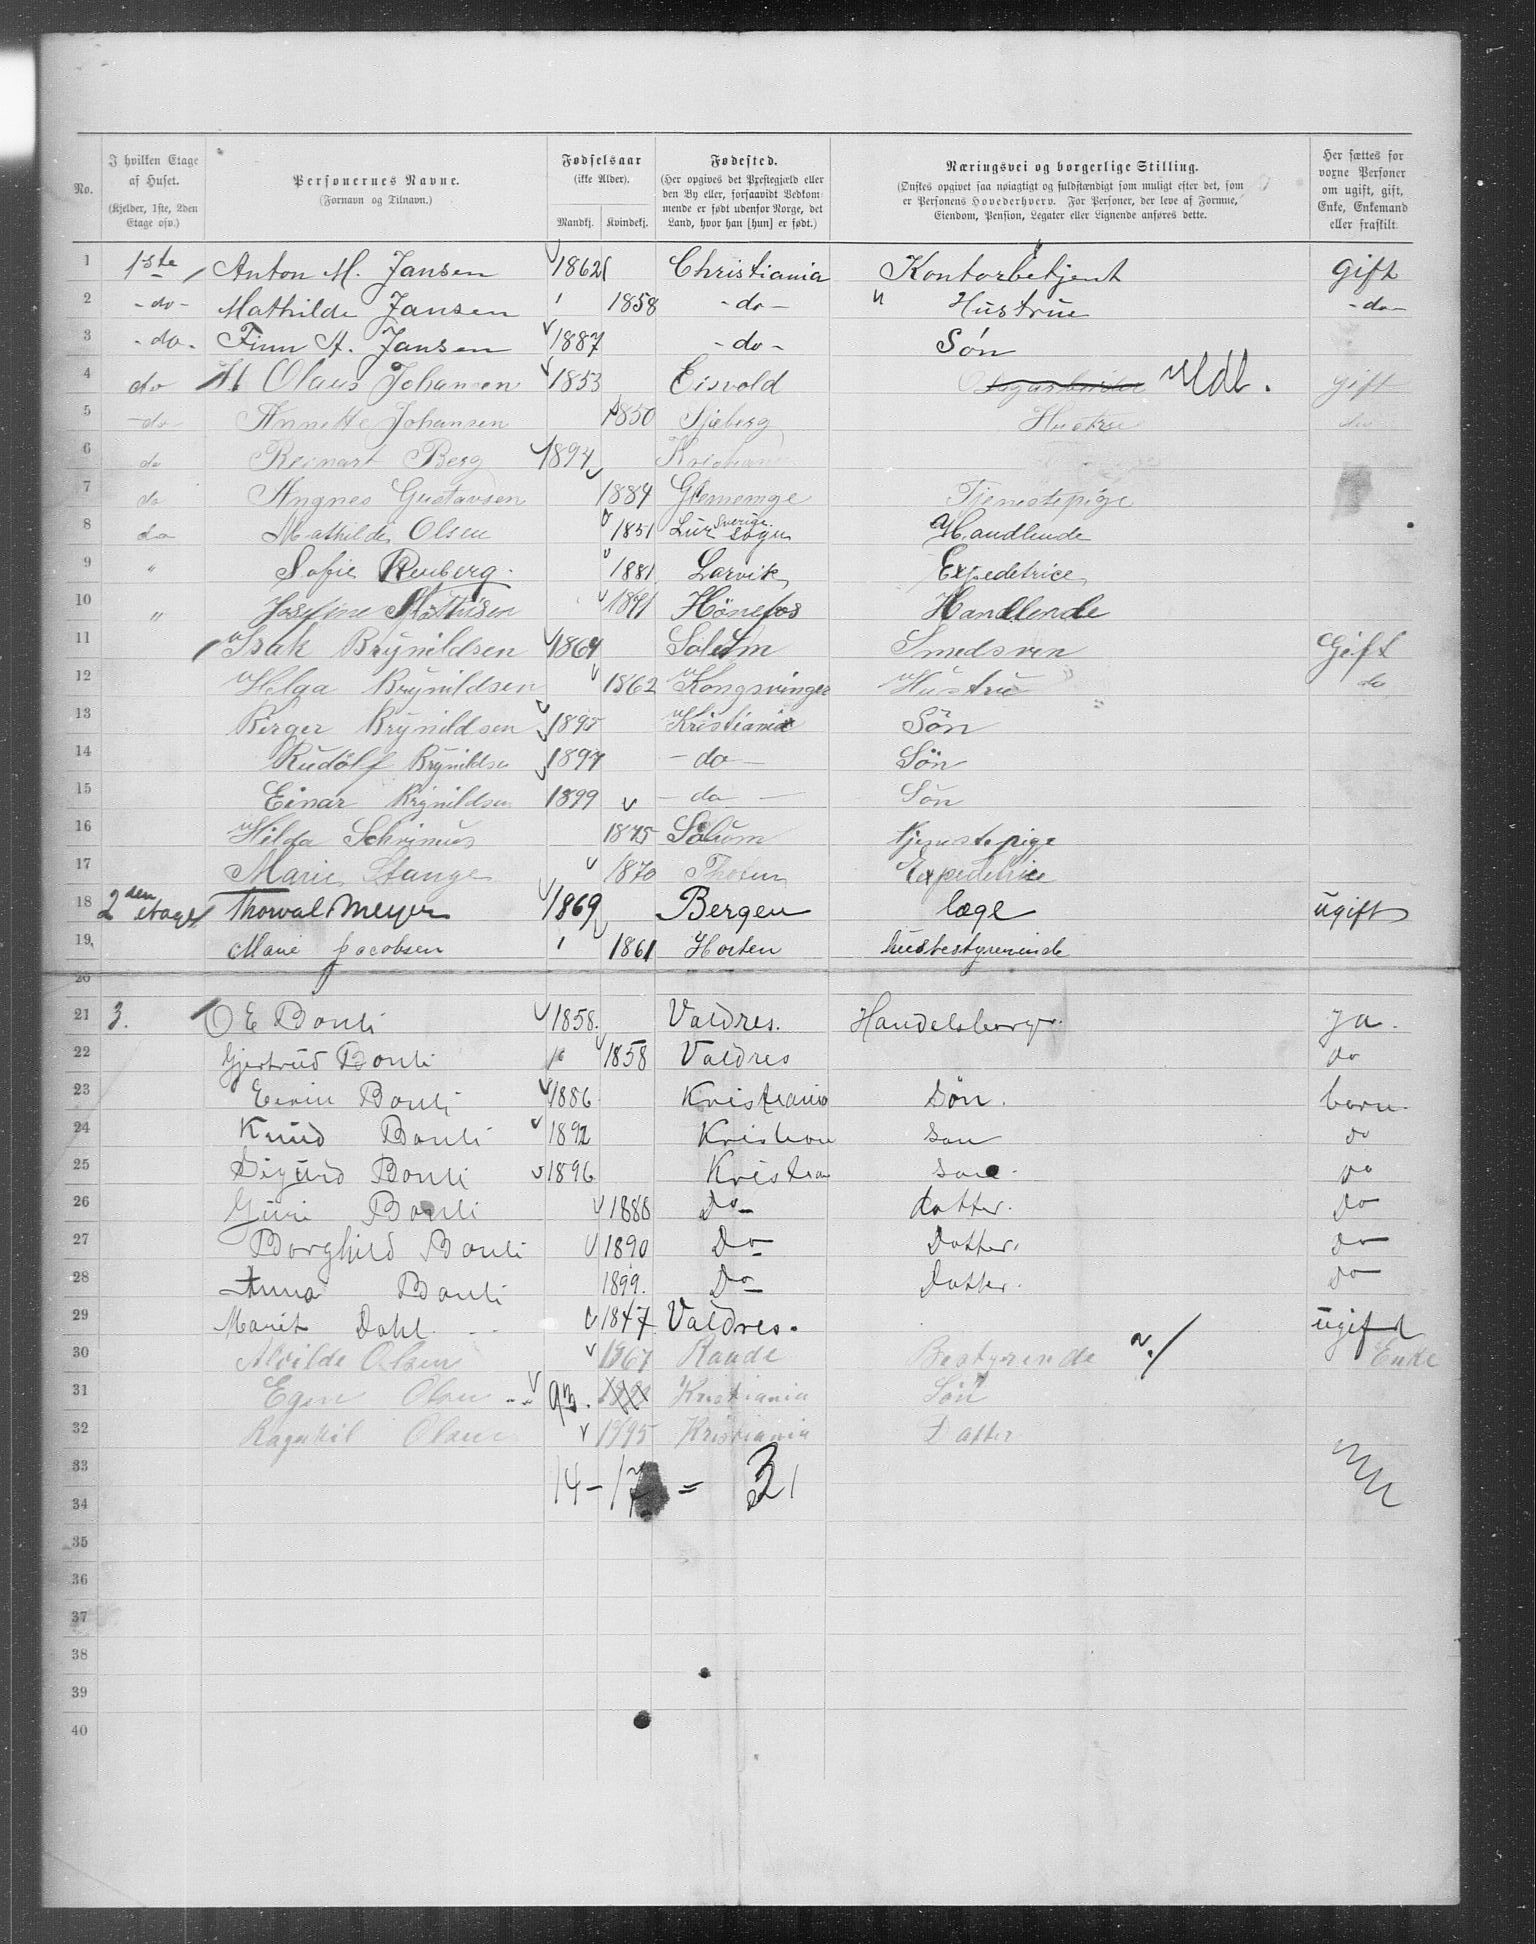 No. | I hvilken Etage af Huset. (Kjelder, 1ste, 2den Etage osv.) | Personernes Navne. (Fornavn og Tilnavn.) | Fødselsaar (ikke Alder). Mandkj. Kvindekj. | Fødested. (Her opgives det Prestegjæld eller den By eller, forsaavidt Vedkommende er født udenfor Norge, det Land, hvor han [hun] er født.) | Næringsvei og borgerlige Stilling. (Ønskes opgivet saa nøiagtigt og fuldstændigt som muligt efter det, som er Personens Hovederhverv. For Personer, der leve af Formue, Eiendom, Pension, Legater eller Lignende anføres dette. | Her sættes for voxne Personer om ugift, gift, Enke, Enkemand eller fraskilt
1 1ste Anton M. Jansen 1862 Christiania Kontorbetjent gift
2 -do- Mathilde Jansen 1858 -do- Hustrue -do-
3 -do- Finn A. Jansen 1887 -do- Søn
4 do Olaus Johansen 1853 Eisvold gift
5 -do- Annette Johansen 1850 Hustru do
6 do Reinart Berg 1894
7 do Angnes Gustavsen 1884 Glemmnge Tjenestepige
8 do Mathilde Olsen 1851 Lur Sverige sogn Handlende
9 " Sofie 1881 Larvik Expedetrice
10 " Josefine Mathisen Hönefos Handlende
11 Isak Brynildsen 1864 Solum Smedsven Gift
12 Helga Brynildsen 1862 Kongsvinger Hustru do
13 Birger Brynildsen 1895 Kristiania Sön
14 Rudolf Brynildsen 1897 -do- Sön
15 Einar Brynildsen 1899 -do- Sön
16 Hilda 1875 Solum tjenestepige
17 Marie Stange 1870 Thoten Expedetrice
18 2den etage Thorval Meyer 1869 Bergen læge ugift
19 Marie Jacobsen 1861 Horten husbestyrerinde
20
21 3. O E Bonli 1858. Valdres. Handelsborgr. ja.
22 Gjertrud Bonli 1858 Valdres do
23 Bonli 1886 Kristiania Søn. barn.
24 Knud Bonli 1892 Kristian søn do
25 Sigurd Bonli 1896 Kristian do
26 Guri Bonli 1888 Do Datter. Do
27 Borghild Bonli 1890 Do Datter. Do
28 Anna Bonli 1899. Do Datter. Do
29 Marit Dahl 1847 Valdres. ugift
30 Alvilde Olsen 1867 Raade Bestyrende Enke
31 Olsen 93. Kristiania Søn
32 Ragnhil Olsen 1895 Kristiania Datter
33 14 - 17 = 31
34
35
36
37
38
39
40